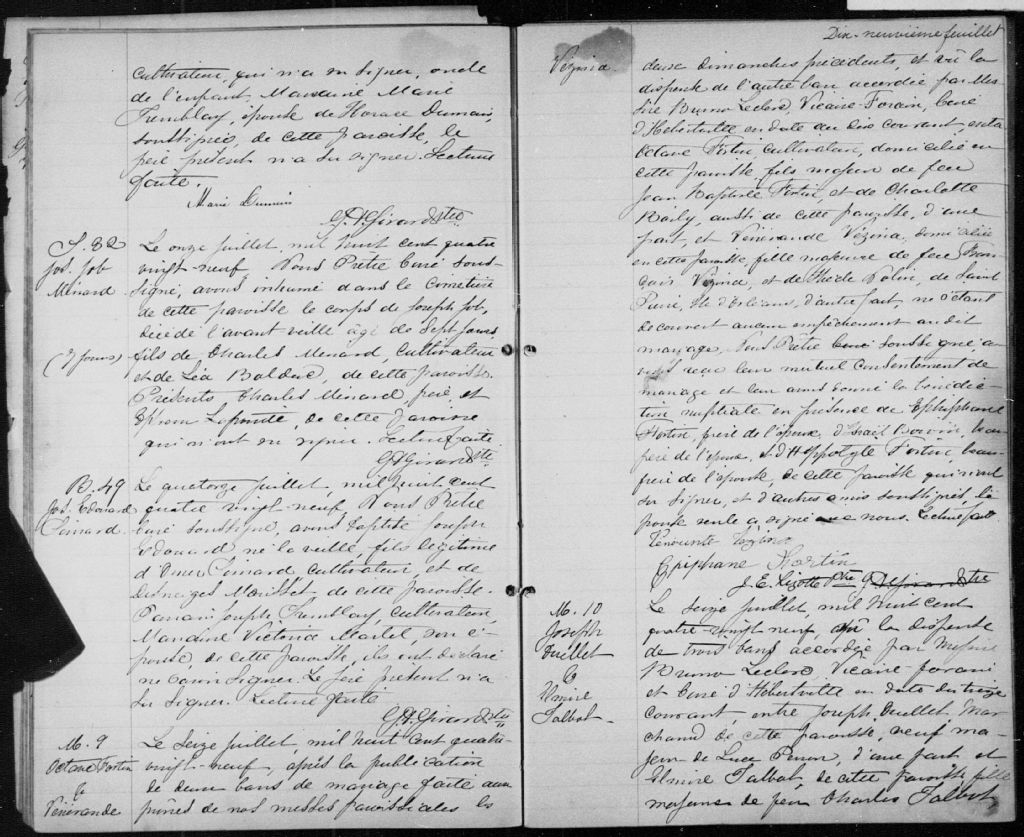 cultivateur, qui n'a su signer, oncle
de l'enfant, Marraine Marie
Tremblay, épouse de Horace Dumais,
soussignée, de cette paroisse, le
père présent n'a su signer. Lecture
faite.
Marie Dumais
Ptre
S. 32
Jos. Job
Ménard
(7 jours)
Le onze juillet, mil huit cent quatre
vingt-neuf, Nous Prêtre Curé sous-
signé, avons inhumé dans le Cimetière
de cette paroisse le corps de Joseph Job,
décédé l'avant veille, âgé de Sept jours,
fils de Charles Menard, Cultivateur
et de Léa Bolduc, de cette paroisse.
Présents, Charles Ménard, père, et
de cette Paroisse
qui n'ont su signer. Lecture faite
Girard Ptre
B. 49
Jos. Edouard
Simard
Le quatorze juillet, mil huit cent
quatre vingt-neuf, Nous Prêtre
Curé soussigné, avons baptisé Joseph
Edouard né la veille, fils légitime
d'Omer Simard cultivateur et de
de cette paroisse.
Parrain Joseph Tremblay, cultivateur,
Marraine Victoria Martel, son é-
pouse, de cette paroisse, ils ont déclaré
ne savoir signer. Le père présent n'a
su signer. Lecture faite
Girard Ptre
M. 9
Octave Fortin
&
Vénérande
Le Seize juillet, mil huit Cent quatre
vingt-neuf, après la publication
de deux bans de mariage faite aux
prônes de nos messes paroissiales les
Dix-neuvième feuillet
Vézina
deux dimanches précédents, et vu la
dispense de l'autre ban accordée par Mes
sire Bruno Leclerc, Vicaire-Forain, Curé
d'Hébertville en date du dix courant, entre
Octave Fortin, Cultivateur, domicilié en
cette paroisse, fils majeur de feu
Jean Baptiste Fortin, et de Charlotte
Baily, aussi de cette paroisse, d'une
part, et Vénérande Vézina, domiciliée
en cette paroisse, fille majeure de feu Fran
çois Vézina, et de de Saint
Pierre, Ile d'Orléans, d'autre part, ne s'étant
découvert aucun empêchement audit
mariage, Nous Prêtre Curé soussigné, a
vons reçu leur mutuel consentement de
mariage et leur avons donné la bénédic
tion nuptiale en présence de Ephiphane
Fortin, frère de l'époux, beau
frère de l'époux, & d'Hippolyte Fortin beau
frère de l'épouse, de cette paroisse qui n'ont
su signer, et d'autres amis soussignés, l'é
pouse seule a signé avec nous. Lecture faite
Vézina
Epiphane Fortin
J. E. Lizotte Ptre Girard Ptre
M. 10
Joseph
Ouellet
&
Elmire
Talbot
Le Seize juillet, mil huit cent
quatre-vingt neuf, vu la dispense
de trois bans accordée par Messire
Bruno Leclerc, Vicaire forain
et Curé d'Hébertville en date du treize
courant, entre Joseph Ouellet, Mar
chand de cette paroisse, veuf ma-
jeur de Luce d'une part, et
Elmire Talbot, de cette paroisse fille
majeure de feu Charles Talbot